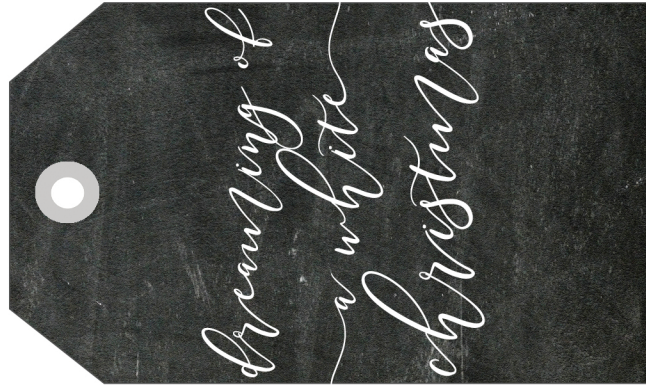 dreaming of
a white
christmas